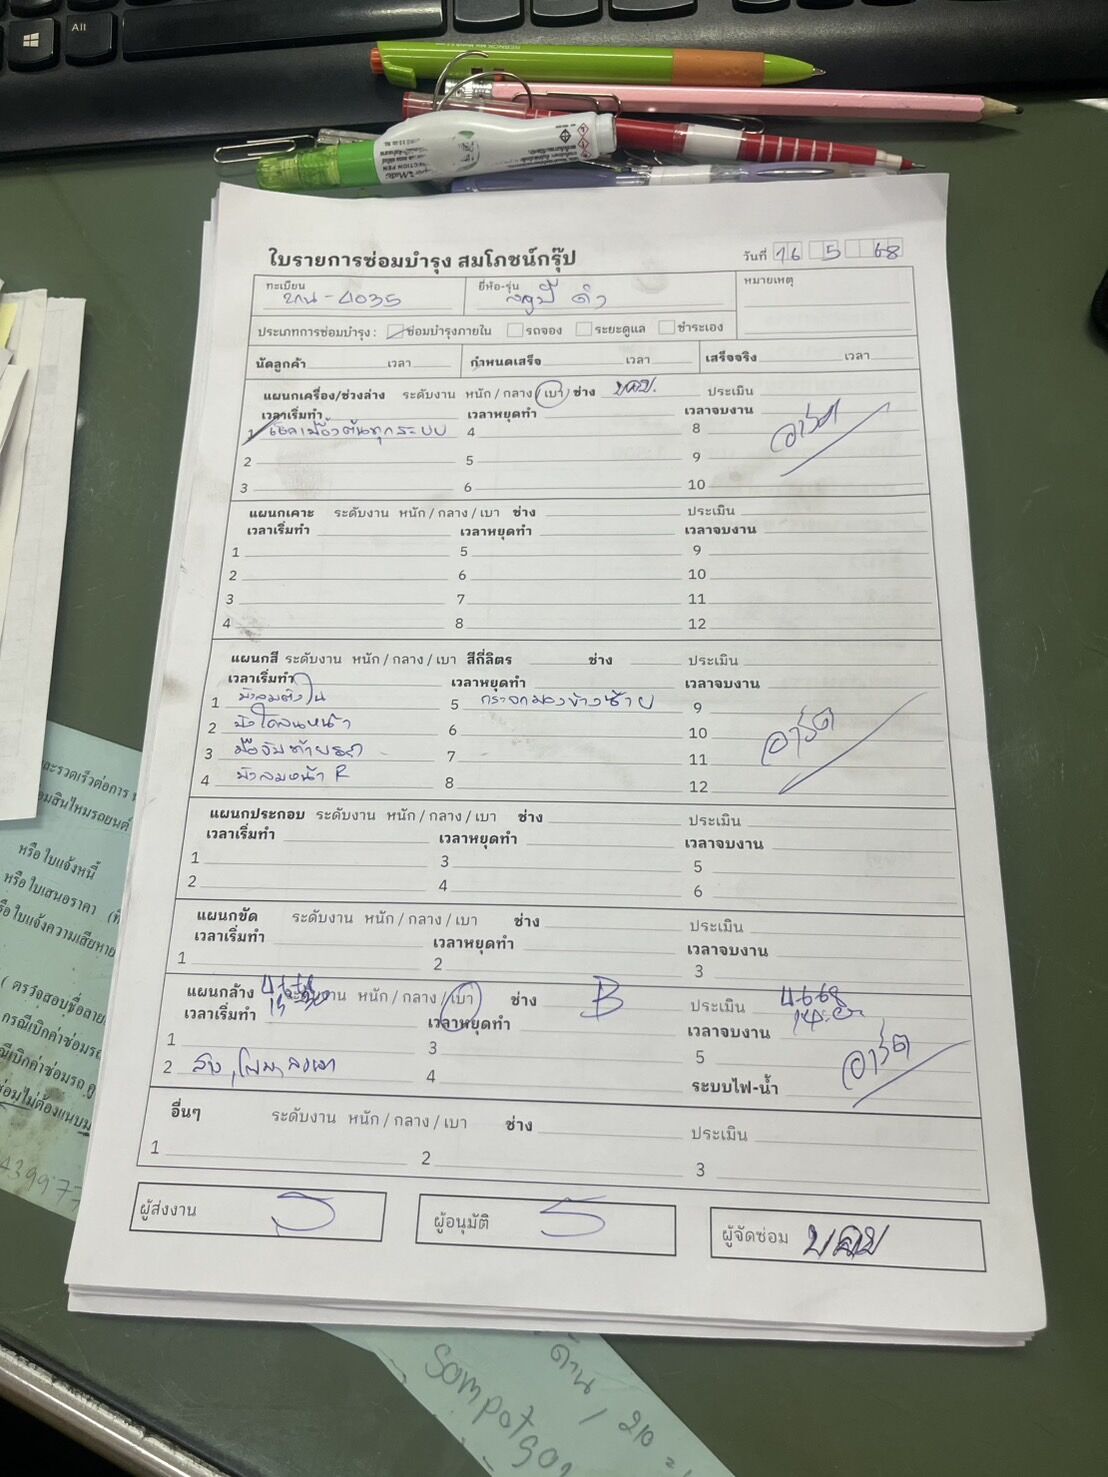 All
ใบรายการซ่อมบำรุง สมโภชน์กรุ๊ป
วันที่ 16 5 68
ทะเบียน
ขาน-4035
ยี่ห้อ-รุ่น
สกู๊ปปี้ ดำ
หมายเหตุ
ประเภทการซ่อมบำรุง : ซ่อมบำรุงภายใน รถจอง ระยะดูแล ชำระเอง
นัดลูกค้า เวลา กำหนดเสร็จ เวลา เสร็จจริง เวลา
แผนกเครื่อง/ช่วงล่าง ระดับงาน หนัก / กลาง / เบา / ช่าง บอย. ประเมิน
เวลาเริ่มทำ เวลาหยุดทำ เวลาจบงาน
1 เช็คเบื้องต้นทุกระบบ 4 8
อาร์ต
2 5 9
3 6 10
แผนกเคาะ ระดับงาน หนัก / กลาง / เบา ช่าง ประเมิน
เวลาเริ่มทำ เวลาหยุดทำ เวลาจบงาน
1 5 9
2 6 10
3 7 11
4 8 12
แผนกสี ระดับงาน หนัก / กลาง / เบา สีกี่ลิตร ช่าง ประเมิน
เวลาเริ่มทำ เวลาหยุดทำ เวลาจบงาน
1 บังลมตัวใน 5 กระจกมองข้างซ้าย 9
2 บังโคลนหน้า 6 10
อาร์ต
3 มือจับท้ายรถ 7 11
4 บังลมหน้า R 8 12
แผนกประกอบ ระดับงาน หนัก / กลาง / เบา ช่าง ประเมิน
เวลาเริ่มทำ เวลาหยุดทำ เวลาจบงาน
1 3 5
2 4 6
แผนกขัด ระดับงาน หนัก / กลาง / เบา ช่าง ประเมิน
เวลาเริ่มทำ เวลาหยุดทำ เวลาจบงาน
1 2 3
แผนกล้าง ระดับงาน หนัก / กลาง / เบา ช่าง B ประเมิน 4-6-68
เวลาเริ่มทำ เวลาหยุดทำ เวลาจบงาน
1 3 5
อาร์ต
2 ล้าง, 4 ระบบไฟ-น้ำ
อื่นๆ ระดับงาน หนัก / กลาง / เบา ช่าง ประเมิน
1 2 3
ผู้ส่งงาน
ผู้อนุมัติ
ผู้จัดซ่อม บอย
และรวดเร็วต่อการ
หรือใบแจ้งหนี้
หรือใบเสนอราคา
( ตรวจสอบชื่อลาย
กรณีเบิกค่าซ่อมรถ
ซ่อมไม่ต้องแนบ
4399
ด้าน / 210
Sompot